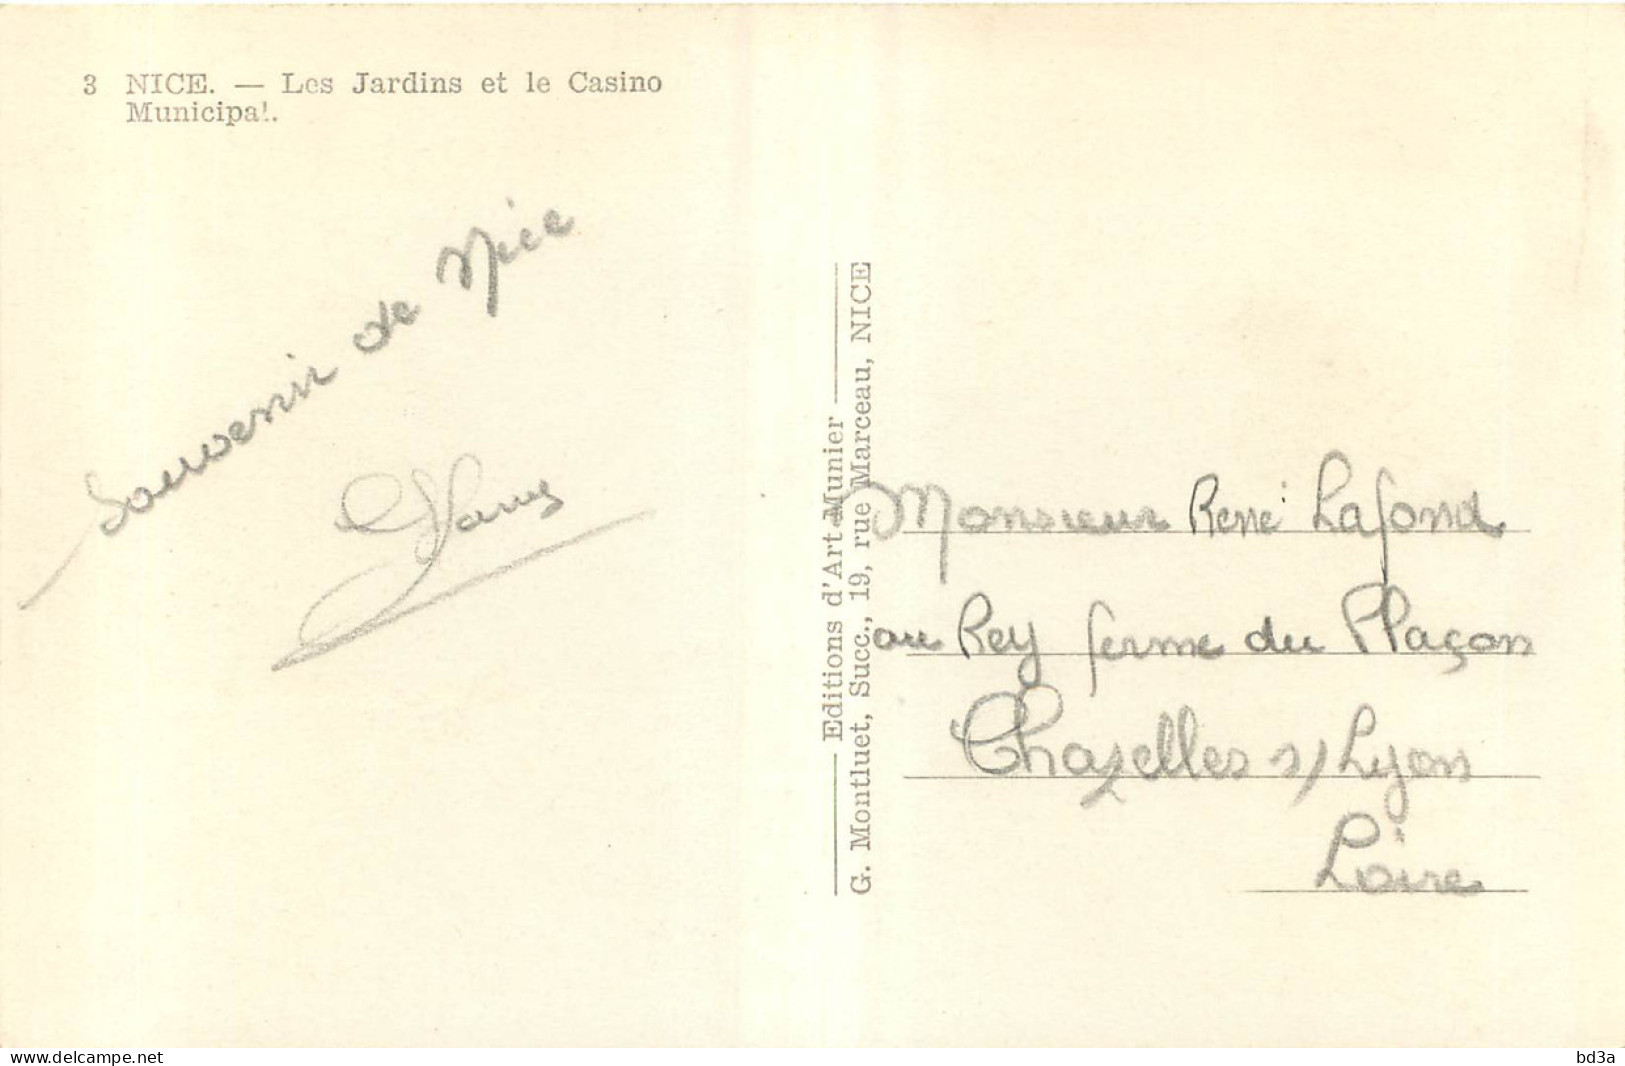 3 NICE. — Les Jardins et le Casino
Municipal.
Souvenir de Nice
Editions d'Art Munier
G. Montluet, Succ., 19, rue Marceau, NICE
Monsieur René Lafond
au Rey ferme du Plaçon
Chazelles s/Lyon
Loire
www.delcampe.net
bd3a